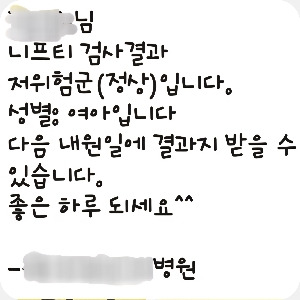 님
니프티 검사결과
저위험군(정상)입니다.
성별: 여아입니다
다음 내원일에 결과지 받을 수
있습니다.
좋은 하루 되세요^^
-병원